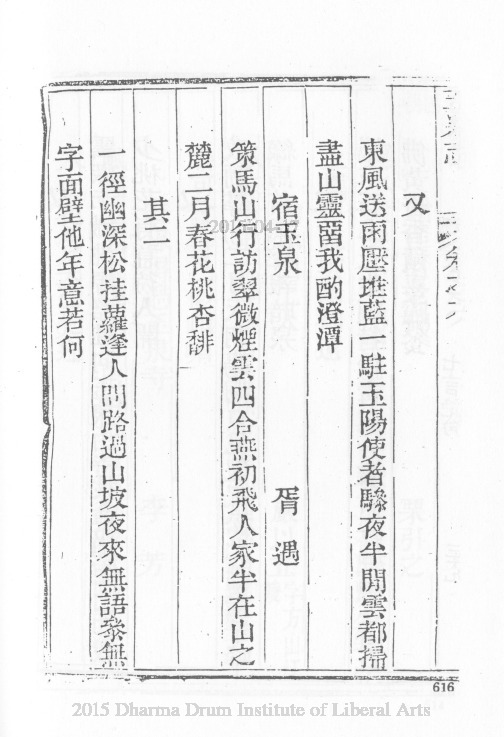 又
東風送雨壓堆藍一駐玉陽使者驂夜半閒雲都掃
盡山靈畱我酌澄潭
宿玉泉 胥遇
策馬山行訪翠微煙雲四合燕初飛人家半在山之
麓二月春花桃杏馡
其二
一徑幽深松挂蘿逢人問路過山坡夜來無語叅無
字面壁他年意若何
616
2015 Dharma Drum Institute of Liberal Arts